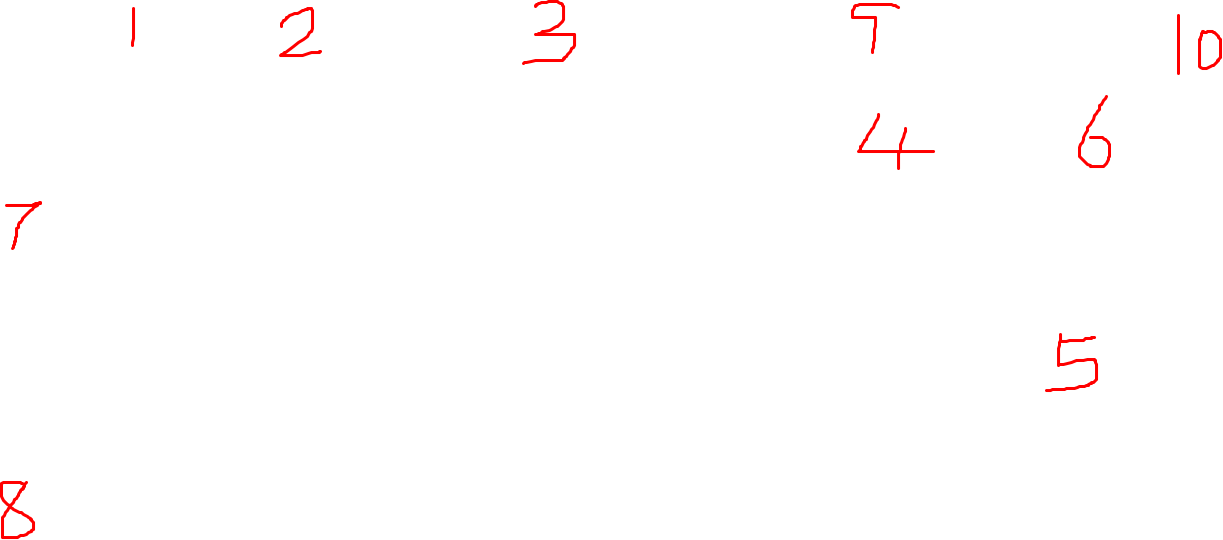 1 2 3 9 10
4 6
7
5
8